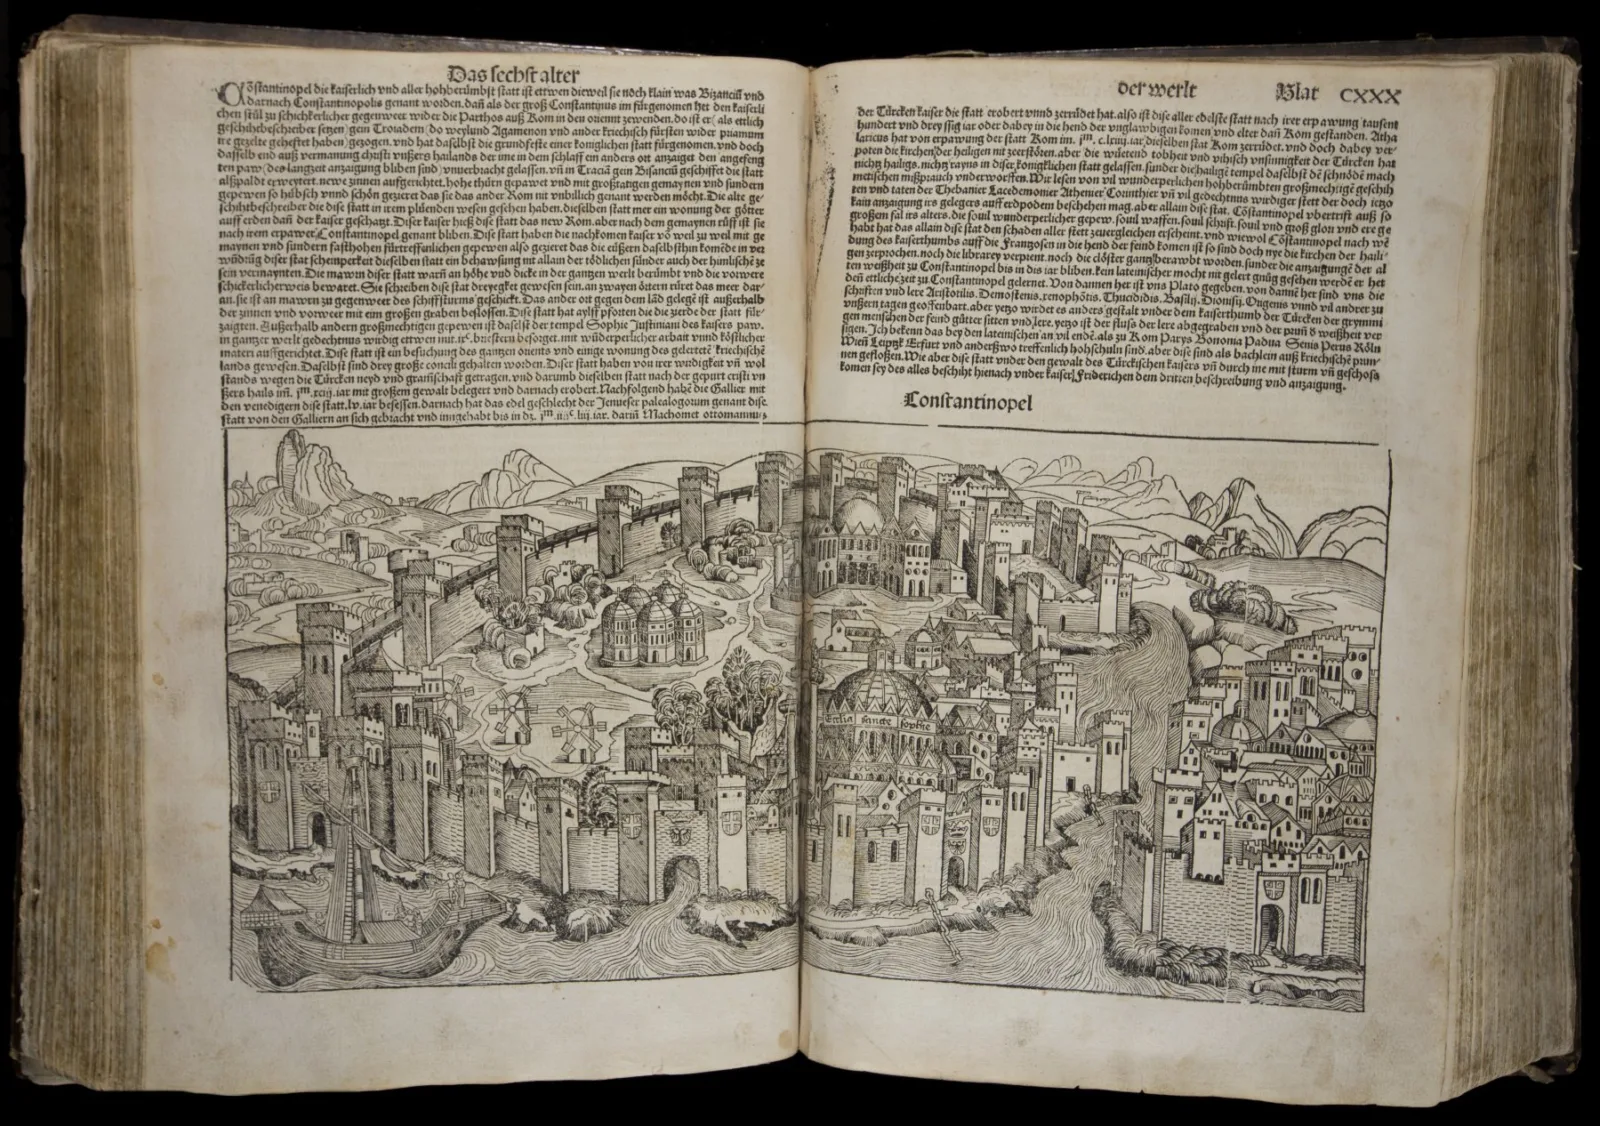 Das sechst alter
Cōstantinopel die kaiserlich vnd aller hohberümbst statt ist ettwen dieweil sie noch klain was Bizanciū vnd
darnach Constantinopolis genant worden. dañ als der groß Constantinus im fürgenomen het den kaiserli
chen stůl zu schicklicher gegenweer wider die Parthos auß Rom in den orient zewenden. do ist er (als ettlich
geschihtbeschreiber setzen) gein Troiadem (do weylund Agamenon vnd ander kriechisch fürsten wider priamum
ire gezelte geheftet haben) gezogen. vnd hat daselbst die grundfeste einer koniglichen statt fürgenomen. vnd doch
dasselb end auß vermanung christi vnßers hailands der ime in dem schlaff ein anders ort anzaiget den angefeng
ten paw (des langzeit anzaigung bliben sind) vnuerbracht gelassen. vñ in Traciā gein Bisanciū geschiffet die statt
alßpaldt erweytert. newe zinnen auffgerichtet. hohe thürn gepawet vnd mit großtatigen gemaynen vnd sundern
gepewen so hübsch vnnd schön gezieret das sie das ander Rom nit vnbillich genant werden möcht. Die alte ge
schihtbeschreiber die dise statt in irem plüenden wesen gesehen haben. dieselben statt mer ein wonung der götter
auff erden dañ der kaiser geschatzt. Diser kaiser hieß dise statt das new Rom. aber nach dem gemaynen rüff ist sie
nach irem erpawer Constantinopel genant bliben. Dise statt haben die nachkomen kaiser vō weil zu weil mit ge
maynen vnd sundern fasthohen fürtreffenlichen gepewen also gezieret das die eüßern daselbsthin komēde in ver
wūdrūg diser stat scheinperkeit dieselben statt ein behawsung nit allain der tödlichen sünder auch der himlischē ze
sein vermaynten. Die mawrn diser statt warñ an höhe vnd dicke in der gantzen werlt berümbt vnd die vorwere
schickerlicherweis bewaret. Sie schreiben dise stat dreyegket gewesen sein. an zwayen örttern rüret das meer dar
an. sie ist an mawrn zu gegenweer des schiffsturms geschickt. Das ander ort gegen dem lād gelegē ist außerhalb
der zinnen vnd vorweer mit eim großen graben beslossen. Dise statt hat aylff pforten die die zierde der statt für
zaigten. Außerhalb andern großmechtigen gepewen ist daselbst der tempel Sophie Justiniani des kaisers paw.
in gantzer werlt gedechtnus wirdig ettwen mit .ixc. briestern besorget. mit wūderperlicher arbait vnnd köstlicher
materi auffgerichtet. Dise statt ist ein besuchung des gantzen orients vnd einige wonung des gelertetē kriechischē
lands gewesen. Daselbst sind drey große concili gehalten worden. Diser statt haben von irer wirdigkeit vñ wol
stands wegen die Türcken neyd vnd gramschaft getragen. vnd darumb dieselben statt nach der gepurt cristi vn
ßers hails im .jm.xciij. iar mit großem gewalt belegert vnd darnach erobert. Nachfolgend habē die Gallier mit
den venedigern dise statt .lv. iar besessen. darnach hat das edel geschlecht der Jenueser palealogorum genant dise
statt von den Galliern an sich gebracht vnd inngehabt bis in dz .jm.iiijc.liij. iar. dariñ Machomet ottomannus
der werlt Blat CXXX
der Türcken kaiser die statt erobert vnnd zerrüdet hat. also ist dise aller edelste statt nach irer erpawung tausent
hundert vnd dreyssig iar oder dabey in die hend der vnglawbigen komen vnd elter dañ Rom gestanden. Atha
laricus hat von erpawung der statt Rom im .jm.c.lxiiij. iar dieselben stat Rom zerrüdet. vnd doch dabey ver
poten die kirchen der heiligen nit zerstören. aber die wüetend tobheit vnd vihisch vnsinnigkeit der Türcken hat
nichtz hailigs. nichtz rayns in diser koniglichen statt gelassen. sunder die hailigē tempel daselbst dē schnödē mach
metischen mißprauch vnderworffen. Wir lesen von vil wunderperlichen hohberümbten großmechtigē geschih
ten vnd taten der Thebanier Lacedemonier Athenier Corinthier vñ vil gedechtnus wirdiger stett der doch ietzo
kain anzaigung irs gelegers auff erdpodem beschehen mag. aber allain dise stat. Cōstantinopel vbertrift auß so
großem fal irs alters. die souil wunderperlicher gepew. souil waffen. souil schrift. souil vnd groß glori vnd ere ge
habt hat das allain dise stat den schaden aller stett zeuergleichen erscheint. vnd wiewol Cōstantinopel nach wē
dung des kaiserthumbs auff die Frantzosen in die hend der feind komen ist so sind doch nye die kirchen der haili
gen zerprochen. noch die librarey verprent. noch die clöster gantz berawbt worden. sunder die anzaigungē der al
ten weißheit zu Constantinopel bis in dis iar bliben. kein lateinischer mocht nit gelert gnůg gesehen werdē er het
deñ ettliche zeit zu Constantinopel gelernet. Von dannen her ist vns Plato gegeben. von dannē her sind vns die
schriften vnd lere Aristotilis. Demostenis. xenophōtis. Thucididis. Basilij. Dionisij. Origenis vnnd vil andrer zu
vnßern tagen geoffenbart. aber yetzo wirdet es anders gestalt vnder dem kaiserthumb der Türcken der grymmi
gen menschen der feind gůtter sitten vnd lere. yetzo ist der flusß der lere abgegraben vnd der prunn d weißheit ver
sigen. Ich bekenn das bey den lateinischen an vil endē. als zu Rom Parys Bononia Padua Senis Perus Köln
Wien Leiptzk Erfurt vnd anderßwo treffenlich hohschuln sind. aber dise sind als bachlein auß kriechischē prun
nen geflossen. Wie aber dise statt vnder den gewalt des Türckischen kaisers vñ durch ine mit sturm vñ geschoß
komen sey des alles beschiht hienach vnder kaiser Friderichen dem dritten beschreibung vnd anzaigung.
Constantinopel
Ecclia sancte sophie